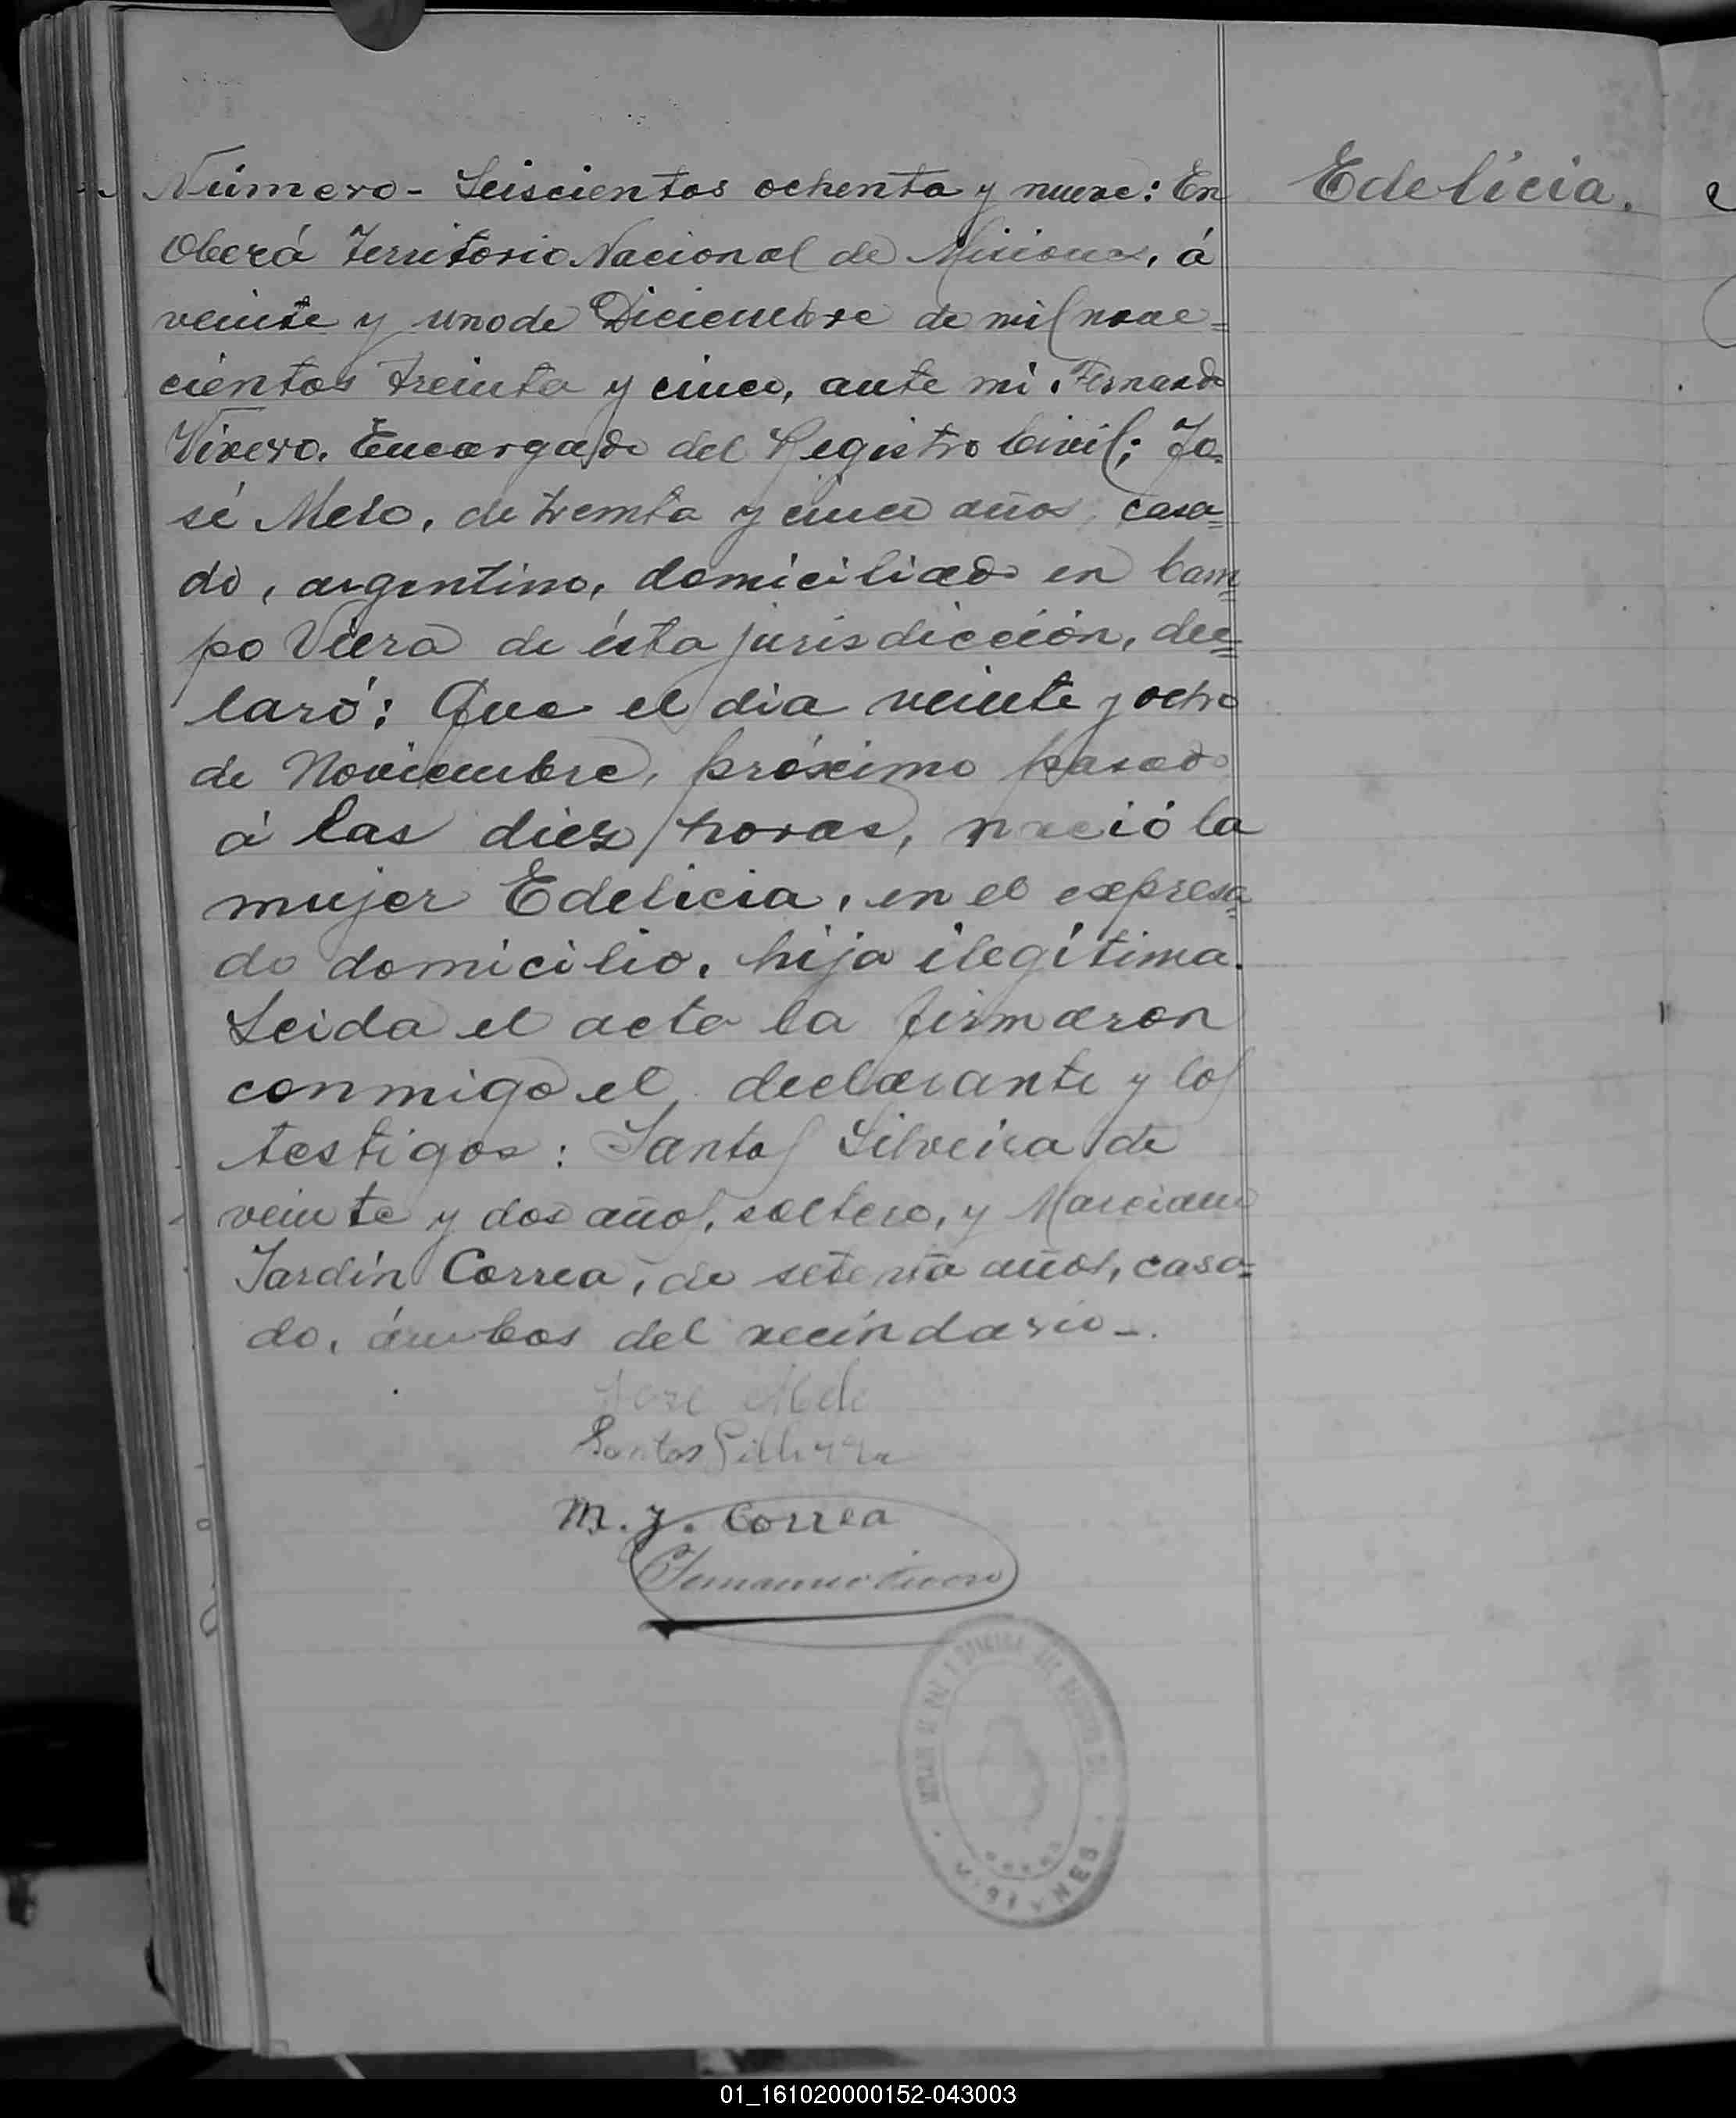 Número - Seiscientos ochenta y nueve: En
Oberá Territorio Nacional de Misiones, á
veinte y uno de Diciembre de mil nove=
cientos treinta y cinco, ante mi, Fernando
Vivero, Encargado del Registro Civil; Jo=
sé Melo, de treinta y cinco años, casa=
do, argentino, domiciliado en Cam=
po Viera de ésta jurisdicción, dec=
laró: Que el dia veinte y ocho
de Noviembre, próximo pasado
á las diez horas, nació la
mujer Edelicia, en el expresa=
do domicilio, hija ilegítima.
Leida el acta la firmaron
conmigo el declarante y los
testigos: Santos Silveira de
veinte y dos años, soltero, y Marciano
Jardín Correa, de setenta años, casa=
do, ámbos del vecindario-.
Edelicia.
Jose Melo
Santos Silveira
M. J. Correa
Fernando Vivero
MISIONES
01_161020000152-043003